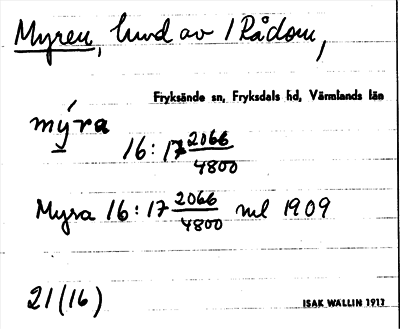 Myren, hmd av 1 Rådom,
Fryksände sn, Fryksdals hd, Värmlands län
mýra
16:17 2066/4800
Myra 16:17 2066/4800 ml 1909
21(16)
ISAK WALLIN 1917